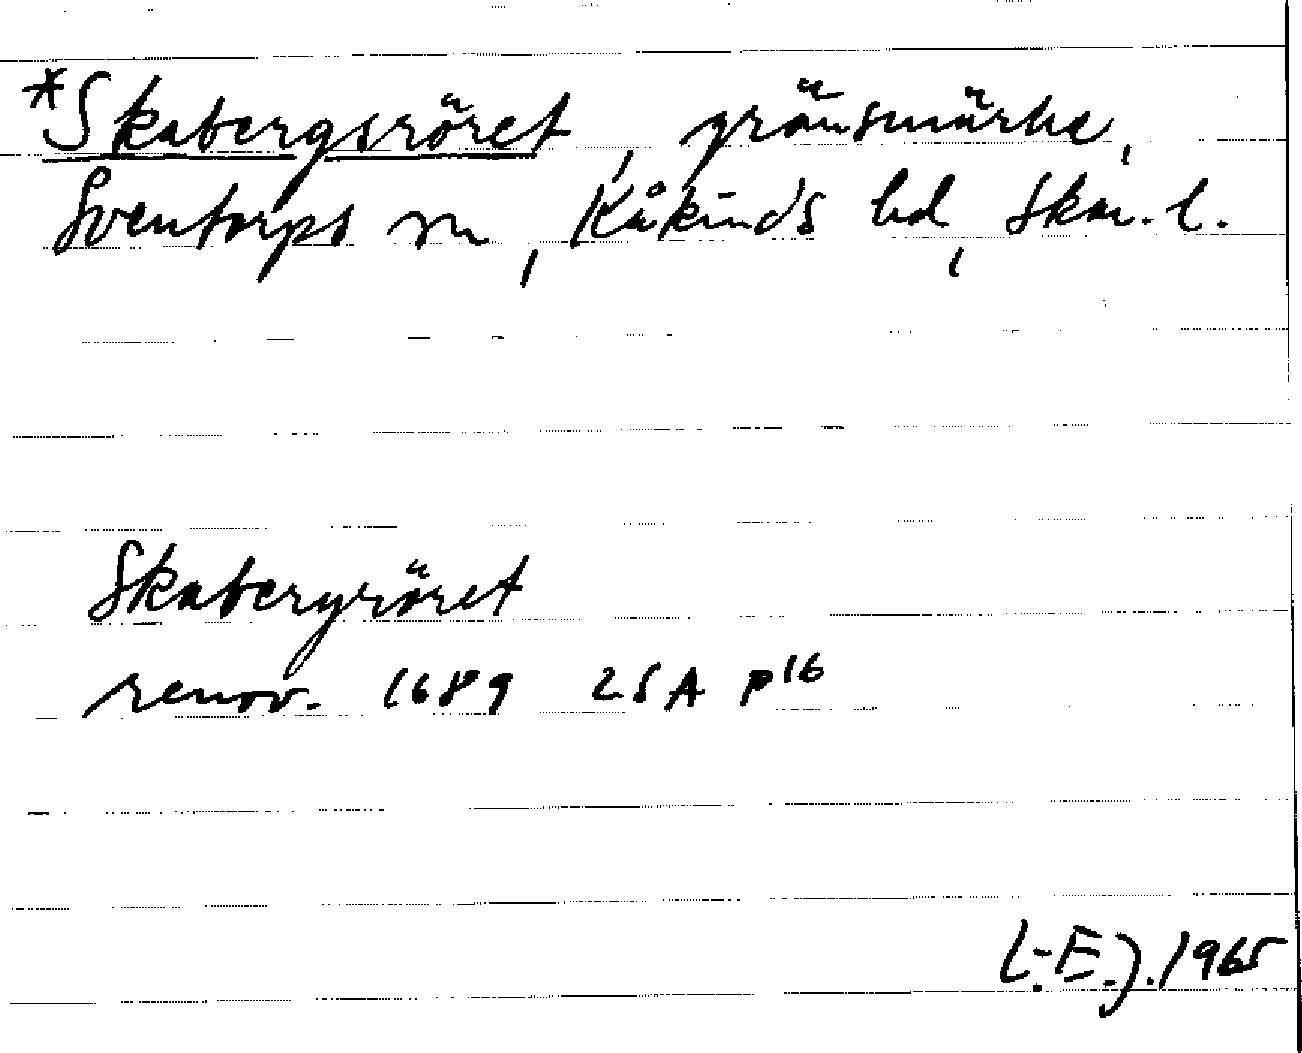 *Skabergsröret, gränsmärke,
Sventorps sn, Kåkinds hd, Skar. l.
Skabergröret
renov. 1689 25A p16
L.-E.J. 1965